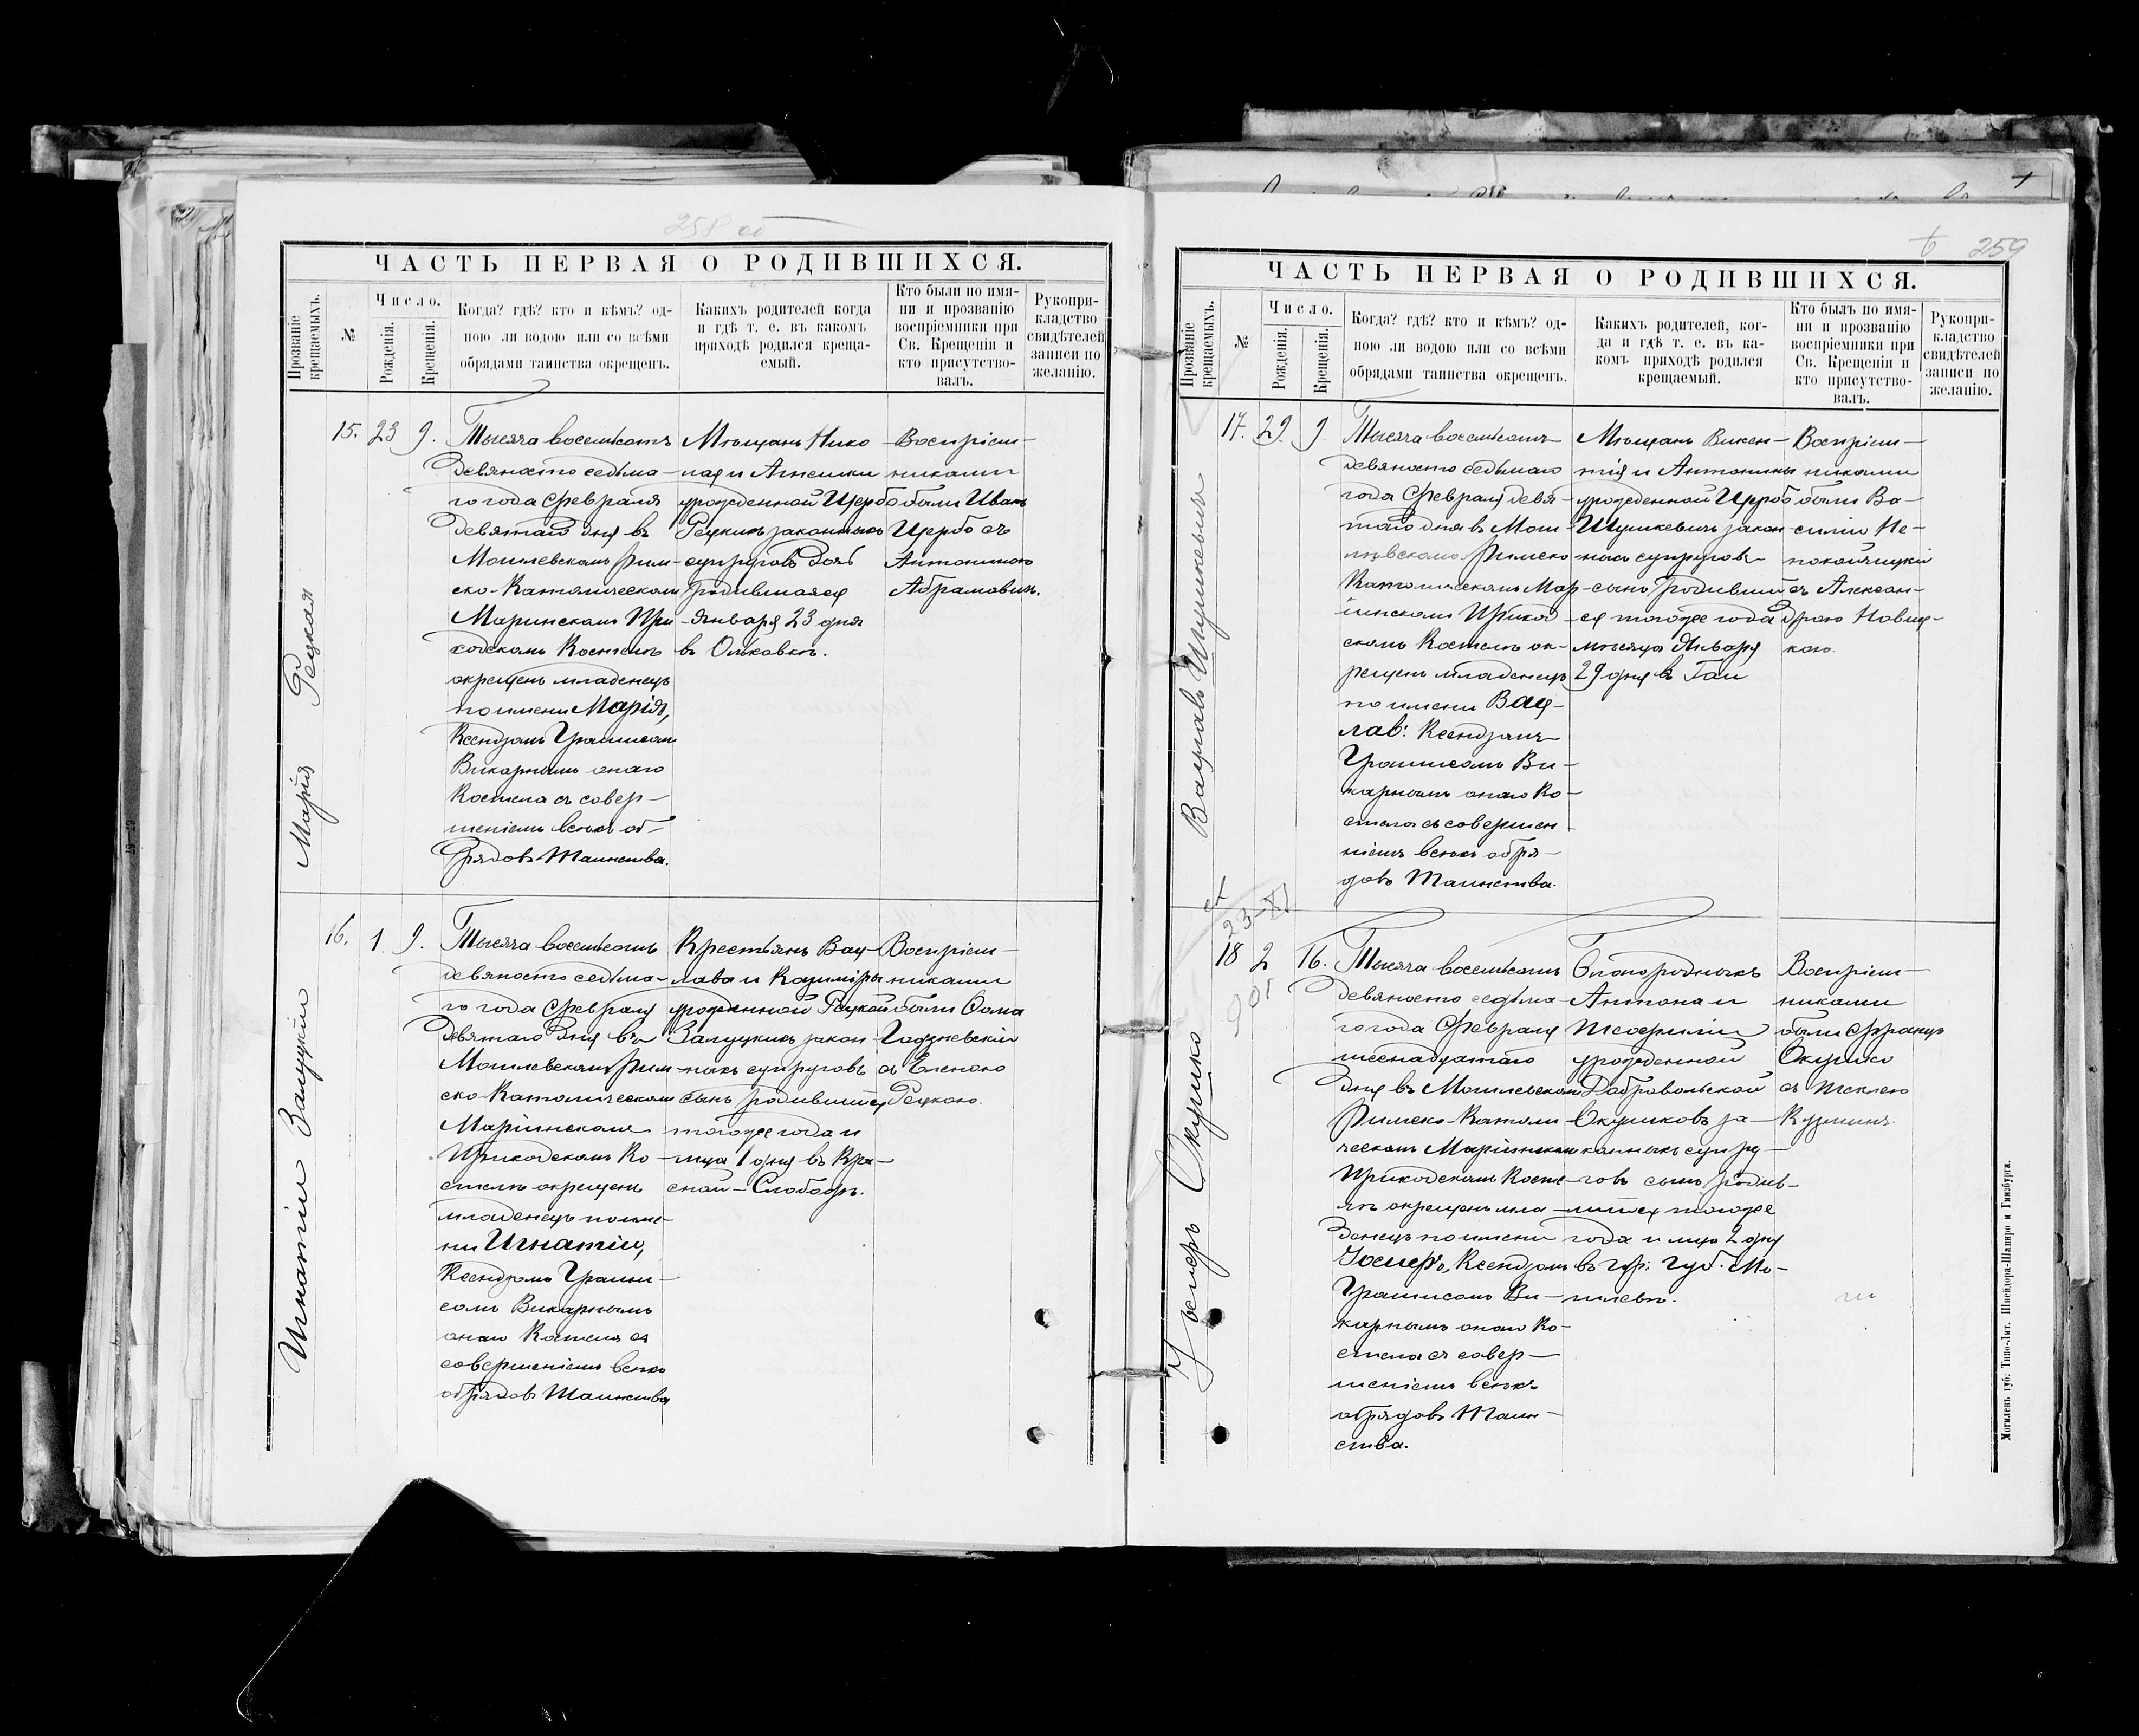 258 об
ЧАСТЬ ПЕРВАЯ О РОДИВШИХСЯ.
Прозваніе крещаемыхъ.
№
Число.
Рожденія.
Крещенія.
Когда? гдѣ? кто и кѣмъ? од-
ною ли водою или со всѣми
обрядами таинства окрещенъ.
Какихъ родителей когда
и гдѣ т. е. въ какомъ
приходѣ родился креща-
емый.
Кто были по имя-
ни и прозванію
воспріемники при
Св. Крещеніи и
кто присутство-
валъ.
Рукопри-
кладство
свидѣтелей
записи по
желанію.
Марія Рецкая
15. 23 9.
Тысяча восемьсотъ
девяносто седьма-
го года Февраля
девятаго дня въ
Могилевскомъ Рим-
ско-Католическомъ
Маринскомъ При-
ходскомъ Костелѣ
окрещенъ младенецъ
по имени Марія,
Ксендзомъ
Викарнымъ онаго
Костела съ совер-
шеніемъ всѣхъ об-
рядовъ Таинства.
Мѣщанъ Нико
лая и Агнешки
урожденной Щербо
Рецкихъ законныхъ
супруговъ дочь
родившаяся
Января 23 дня
въ Ольховкѣ.
Воспріем-
никами
были Иванъ
Щербо съ
Антониною
Абрамовичъ.
Игнатій Залуцкій
16. 1 9.
Тысяча восемьсотъ
девяносто седьма-
го года Февраля
девятаго дня въ
Могилевскомъ Рим
ско-Католическомъ
Маріинскомъ
Приходскомъ Ко-
стелѣ окрещенъ
младенецъ по име-
ни Игнатій,
Ксендзомъ
Викарнымъ
онаго Костела съ
совершеніемъ всѣхъ
обрядовъ Таинства
Крестьянъ Вац-
лава и Казиміры
урожденной Рецкой
Залуцкихъ закон-
ныхъ супруговъ
сынъ родившійся
тогоже года и
м-ца 1 дня въ Кра-
сной-Слободѣ.
Воспріем-
никами
были Ѳома
съ Еленою
Рецкою.
6 259
ЧАСТЬ ПЕРВАЯ О РОДИВШИХСЯ.
Прозваніе крещаемыхъ.
№
Число.
Рожденія.
Крещенія.
Когда? гдѣ? кто и кѣмъ? од-
ною ли водою или со всѣми
обрядами таинства окрещенъ.
Какихъ родителей, ког-
да и гдѣ т. е. въ ка-
комъ приходѣ родился
крещаемый.
Кто былъ по имя-
ни и прозванію
воспріемники при
Св. Крещеніи и
кто присутство-
валъ.
Рукопри-
кладство
свидѣтелей
записи по
желанію.
Вацлавъ Шушкевичъ
17. 29. 9
Тысяча восемьсотъ
девяносто седьмаго
года Февраля девя-
таго дня въ Моги-
левскомъ Римско
Католическомъ Мар-
іинскомъ Приход-
скомъ Костелѣ ок-
рещенъ младенецъ
по имени Вац-
лав: Ксендзомъ
Ви-
карнымъ онаго Ко-
стела съ совершен
ніемъ всѣхъ обря-
довъ Таинства.
Мѣщанъ Викен-
тія и Антонины
урожденной Щербо
Шушкевичъ закон
ныхъ супруговъ
сынъ родивший
ся тогоже года
мѣсяца Января
29 дня въ Гаи
Воспріем-
никами
были Ва-
силій Не-
покойчицкій
съ Алексан-
дрою Новиц-
кою.
23-XI
901
Іосифъ Окушко
18 2 16.
Тысяча восемьсотъ
девяносто седьма-
го года Февраля
шеснадцатаго
дня въ Могилевскомъ
Римско-Католи-
ческомъ Маріинскомъ
Приходскомъ Косте-
лѣ окрещенъ мла-
денецъ по имени
Іосифъ, Ксендзомъ
Ви-
карнымъ онаго Ко-
стела съ совер-
шеніемъ всѣхъ
обрядовъ Таин-
ства.
Благородныхъ
Антона и
Теофиліи
урожденной
Добровольской
Окушковъ за-
конныхъ супру-
говъ сынъ родив-
шійся тогоже
года и м-ца 2 дня
въ гор: губ. Мо-
гилевѣ.
Воспріем-
никами
были Францъ
Окушко
съ Теклею
Кузминъ.
Могилевъ губ. Типо-Лит. Шнейдера-Шапиро и Гинзбурга.